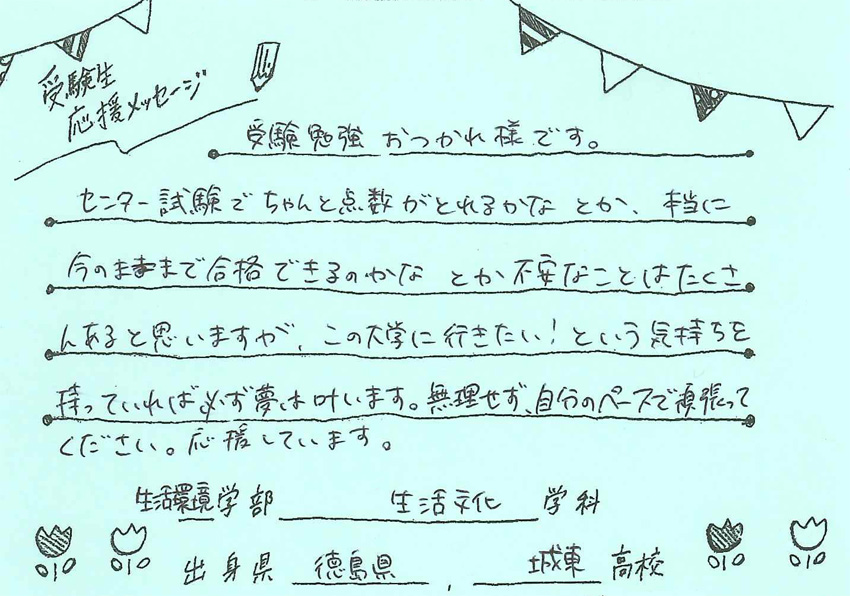 受験生
応援メッセージ
受験勉強 おつかれ様です。
センター試験でちゃんと点数がとれるかな とか、本当に
今のままで合格できるのかな とか不安なことはたくさ
んあると思いますが、この大学に行きたい！という気持ちを
持っていれば必ず夢は叶います。無理せず、自分のペースで頑張って
ください。応援しています。
生活環境学部 生活文化 学科
出身県 徳島県 , 城東 高校